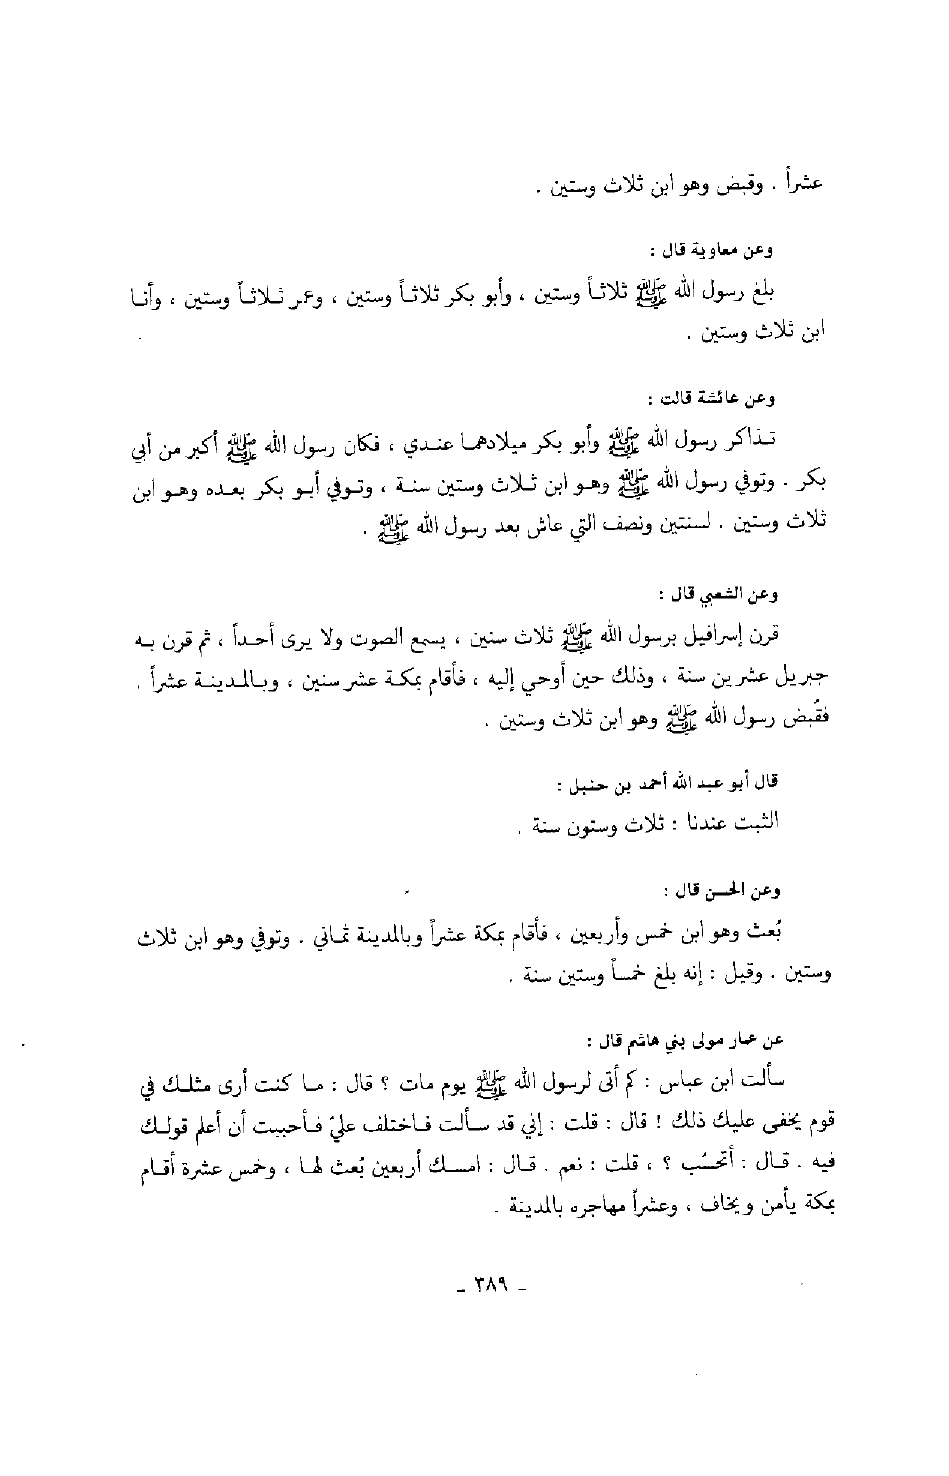 عشراً . وقبض وهو ابن ثلاث وستين .
وعن معاوية قال :
بلغ رسول الله ﷺ ثلاثاً وستين ، وأبو بكر ثلاثاً وستين ، وعمر ثلاثاً وستين ، وأنا
ابن ثلاث وستين .
وعن عائشة قالت :
تذاكر رسول الله ﷺ وأبو بكر ميلادهما عندي ، فكان رسول الله ﷺ أكبر من أبي
بكر . وتوفي رسول الله ﷺ وهو ابن ثلاث وستين سنة ، وتوفي أبو بكر بعده وهو ابن
ثلاث وستين . لسنتين ونصف التي عاش بعد رسول الله ﷺ .
وعن الشعبي قال :
قرن إسرافيل برسول الله ﷺ ثلاث سنين ، يسمع الصوت ولا يرى أحداً ، ثم قرن به
جبريل عشرين سنة ، وذلك حين أوحي إليه ، فأقام بمكة عشر سنين ، وبالمدينة عشراً .
فقُبض رسول الله ﷺ وهو ابن ثلاث وستين .
قال أبو عبد الله أحمد بن حنبل :
الثبت عندنا : ثلاث وستون سنة .
وعن الحسن قال :
بُعث وهو ابن خمس وأربعين ، فأقام بمكة عشراً وبالمدينة ثماني . وتوفي وهو ابن ثلاث
وستين . وقيل : إنه بلغ خمساً وستين سنة .
عن عمار مولى بني هاشم قال :
سألت ابن عباس : كم أتى لرسول الله ﷺ يوم مات ؟ قال : ما كنت أرى مثلك في
قوم يخفى عليك ذلك ! قال : قلت : إني قد سألت فاختلف عليّ فأحببت أن أعلم قولك
فيه . قال : أتحسُب ؟ ، قلت : نعم . قال : امسك أربعين بُعث لها ، وخمس عشرة أقام
بمكة يأمن ويخاف ، وعشراً مهاجره بالمدينة .
- ٣٨٩ -